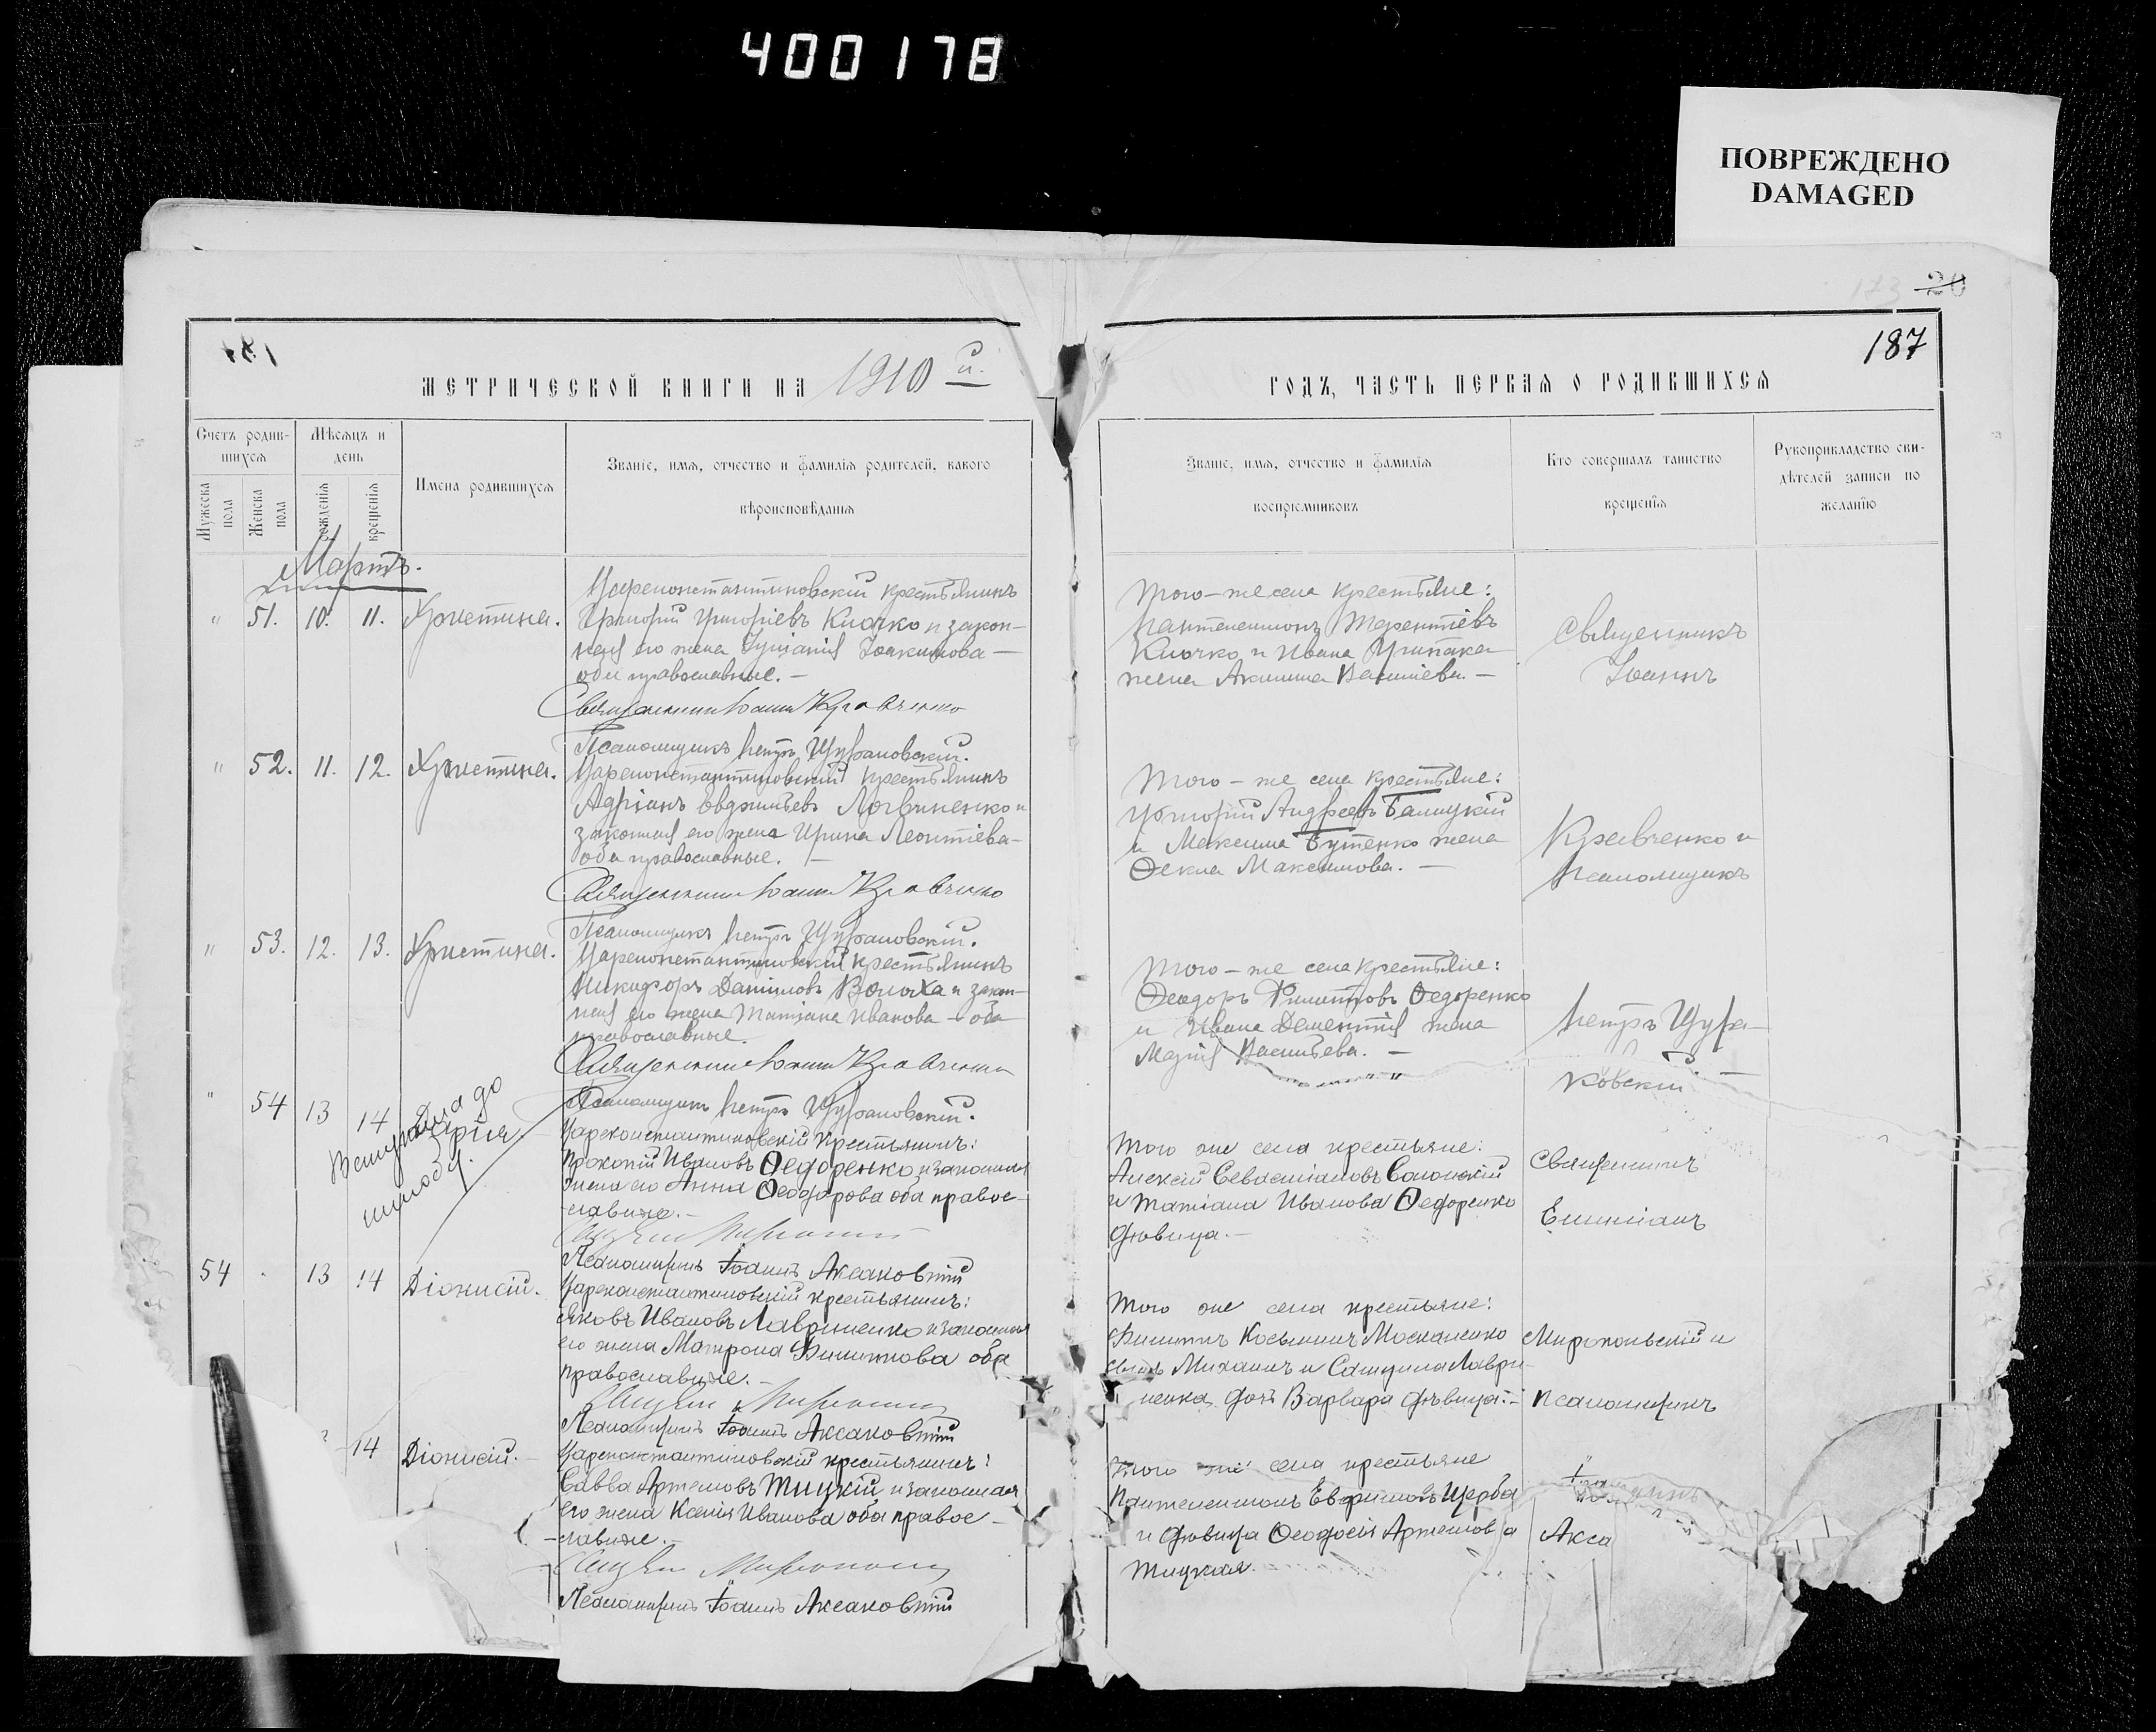 400178
ПОВРЕЖДЕНО
DAMAGED
173 20
187
МЕТРИЧЕСКОЙ КНИГИ НА 1910 й.
ГОДЪ, ЧАСТЬ ПЕРВАЯ О РОДИВШИХСЯ
Счетъ родив-
шихся
Мѣсяцъ и
день
Мужеска
пола
Женска
пола
рожденія
крещенія
Имена родившихся
Званіе, имя, отчество и фамилія родителей, какого
вѣроисповѣданія
Званіе, имя, отчество и фамилія
воспріемниковъ
Кто совершалъ таинство
крещенія
Рукоприкладство сви-
дѣтелей записи по
желанію
Мартъ.
" 51. 10. 11. Христина.
Цареконстантиновскій крестьянинъ
Григорій Григоріевъ Клочко и закон-
ная его жена Іуліанія Іоакимова —
оба православные. —
Священникъ Іоаннъ Кравченко
Псаломщикъ Петръ
Того-же села крестьяне:
Пантелеимонъ Терентіевъ
Клочко и Ивана
жена Акилина Василіева. —
Священникъ
Іоаннъ
" 52. 11. 12. Христина.
Цареконстантиновскій крестьянинъ
Адріанъ Логвиненко и
законная его жена Ирина Леонтіева —
оба православные. —
Священникъ Іоаннъ Кравченко
Псаломщикъ Петръ
Того-же села крестьяне:
Григорій Андреевъ Галицкій
и Максима Бутенко жена
Ѳекла Максимова. —
Кравченко и
псаломщикъ
" 53. 12. 13. Христина.
Цареконстантиновскій крестьянинъ
Никифоръ Даниловъ Волоха и закон-
ная его жена Татіана Иванова — оба
православные.
Священникъ Іоаннъ Кравченко
Псаломщикъ Петръ
Того-же села крестьяне:
Ѳеодоръ Филипповъ Ѳедоренко
и Ивана Дементія жена
Марія Васильева. —
Петръ
" 54 13 14
Цареконстантиновскій крестьянинъ:
Прокопій Ивановъ Ѳедоренко и законная
жена его Анна Ѳеодорова оба правос-
лавные. —
Псаломщикъ Іоаннъ Аксаковскій
Того же села крестьяне:
Алексій Севастіановъ
и Татіана Иванова Ѳедоренко
дѣвица. —
Священникъ
54 13 14 Діонисій.
Цареконстантиновскій крестьянинъ:
Яковъ Ивановъ Лавриненко и законная
его жена Матрона Филиппова оба
православные. —
Псаломщикъ Іоаннъ Аксаковскій
Того же села крестьяне:
Филиппъ Косьминъ Москаленко
Лаври-
ненка дочь Варвара дѣвица. —
Миропольскій и
псаломщикъ
14 Діонисій. —
Цареконстантиновскій крестьянинъ:
Савва Артемовъ Тицкій и законная
его жена Ксенія Иванова оба правос-
лавные. —
Псаломщикъ Іоаннъ Аксаковскій
Того же села крестьяне
Пантелеимонъ Евфимовъ Щерба
и дѣвица Ѳеодосія Артемова
Тицкая.
Акса